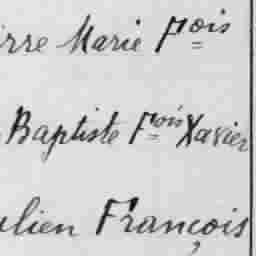 irre Marie Fois
Baptiste Fois Xavier
ulien François